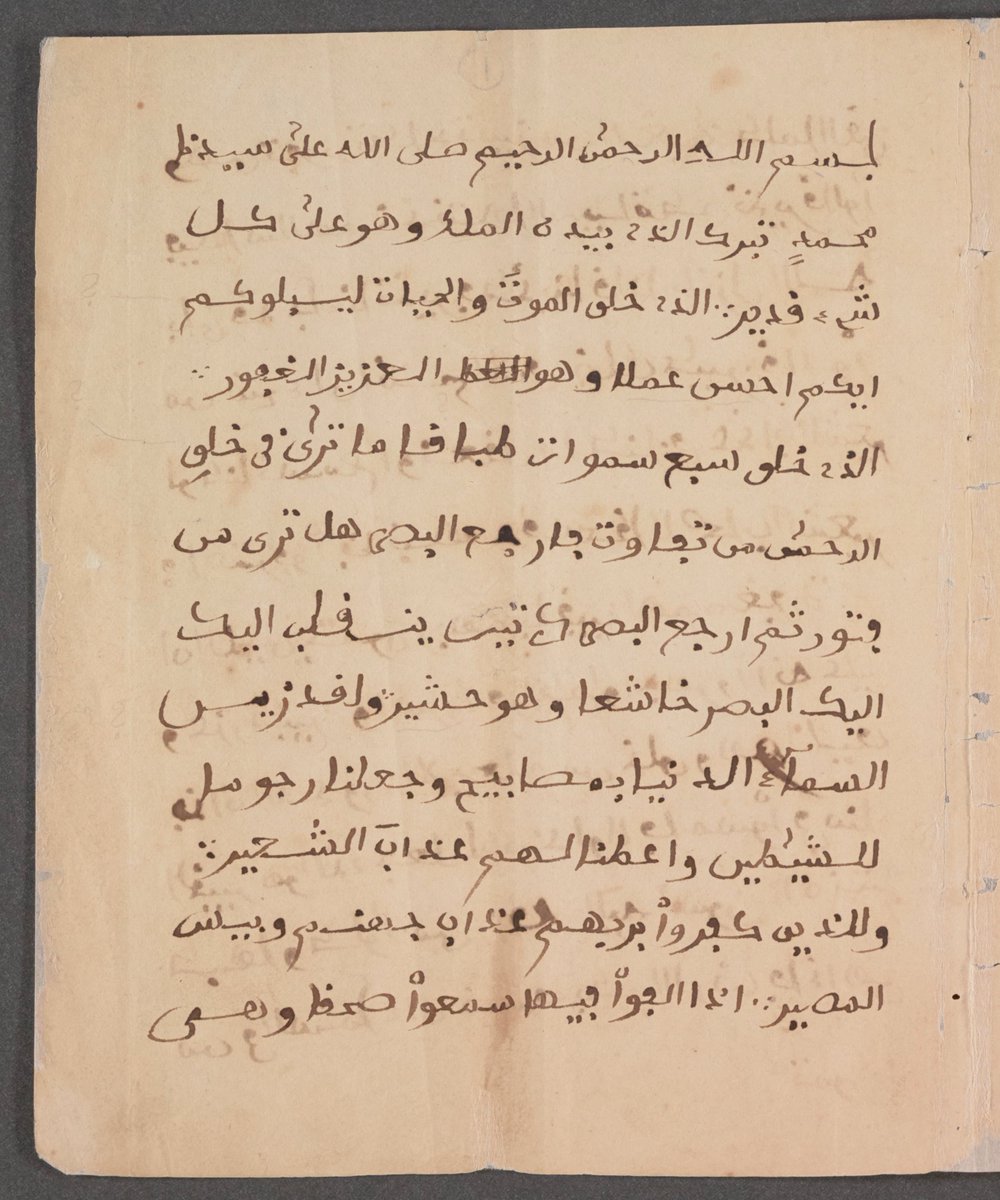 بسم الله الرحمن الرحيم صلى الله على سيدنا
محمدٍ تبرك الذى بيده الملك وهو على كل
شىء قدير الذى خلق الموت والحيات ليسبلوكم
ايكم احسن عملا وهو العزيز الغفور
الذى خلق سبع سموات طباقا ما ترى فى خلقِ
الرحمن من تفاوت فارجع البصر هل ترى من
فتور ثم ارجع البصر ينقلب اليك
اليك البصر خاشعا وهو حشير ولقد زين
السمآء الدنيا بمصابيح وجعلنا رجوما
للشيطين واعطنا لهم عذاب الشعير
وللذين كفروا بربهم عذاب جهنم وبيس
المصير اذا القوا فيها سمعوا وهى